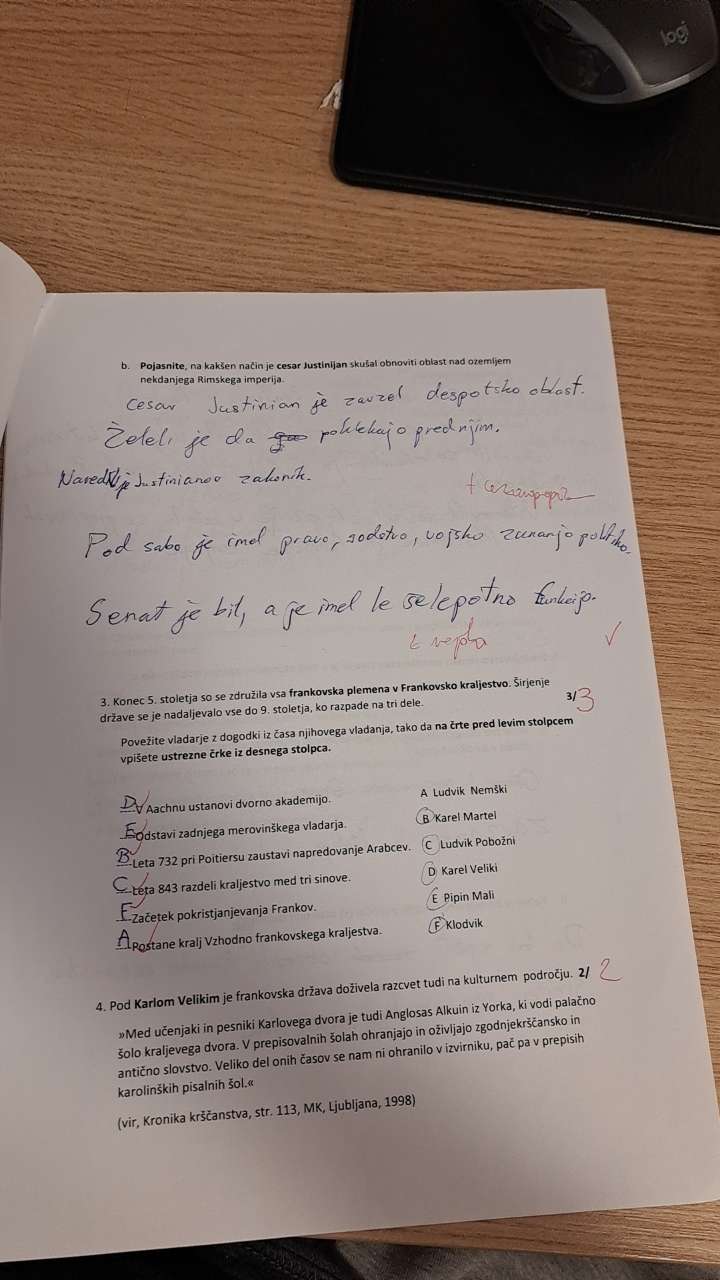 logi
b. Pojasnite, na kakšen način je cesar Justinijan skušal obnoviti oblast nad ozemljem
nekdanjega Rimskega imperija.
Cesar Justinian je zavzel despotsko oblast.
Želel je da poklekajo pred njim.
Naredil je Justinianov zakonik.
Pod sabo je imel pravo, sodstvo, vojsko zunanjo politiko.
Senat je bil, a je imel le svetno funkcijo.
✓
3. Konec 5. stoletja so se združila vsa frankovska plemena v Frankovsko kraljestvo. Širjenje
države se je nadaljevalo vse do 9. stoletja, ko razpade na tri dele.
3/3
Povežite vladarje z dogodki iz časa njihovega vladanja, tako da na črte pred levim stolpcem
vpišete ustrezne črke iz desnega stolpca.
D V Aachnu ustanovi dvorno akademijo.
E Odstavi zadnjega merovinškega vladarja.
B Leta 732 pri Poitiersu zaustavi napredovanje Arabcev.
C Leta 843 razdeli kraljestvo med tri sinove.
F Začetek pokristjanjevanja Frankov.
A Postane kralj Vzhodno frankovskega kraljestva.
A Ludvik Nemški
B Karel Martel
C Ludvik Pobožni
D Karel Veliki
E Pipin Mali
F Klodvik
4. Pod Karlom Velikim je frankovska država doživela razcvet tudi na kulturnem področju. 2/2
»Med učenjaki in pesniki Karlovega dvora je tudi Anglosas Alkuin iz Yorka, ki vodi palačno
šolo kraljevega dvora. V prepisovalnih šolah ohranjajo in oživljajo zgodnjekrščansko in
antično slovstvo. Veliko del onih časov se nam ni ohranilo v izvirniku, pač pa v prepisih
karolinških pisalnih šol.«
(vir, Kronika krščanstva, str. 113, MK, Ljubljana, 1998)